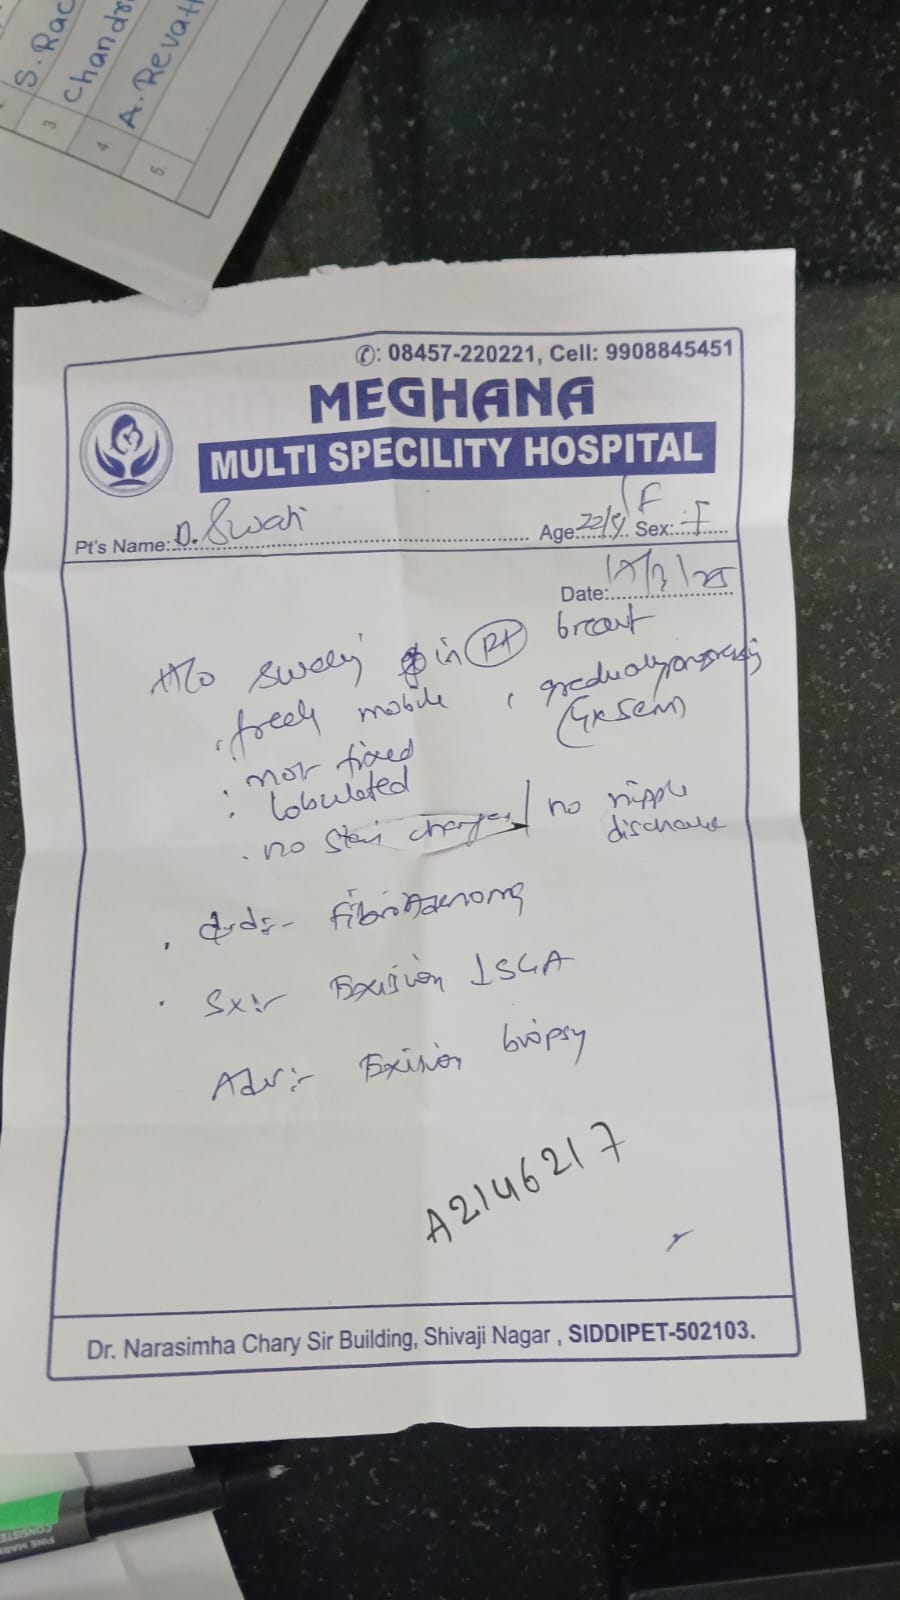 S. Rac
3. Chandr
4. A. Revath
5.
✆: 08457-220221, Cell: 9908845451
MEGHANA
MULTI SPECILITY HOSPITAL
Pt's Name: D. Swati Age: 22/y/F Sex: F
Date:
H/o swelling in Rt breast
freely mobile, gradually progressing
not fixed (5x5cm)
lobulated
no skin changes / no nipple
discharge
Fibroadenoma
Sx:- Excision
Adv:- Excision biopsy
A2146217
Dr. Narasimha Chary Sir Building, Shivaji Nagar, SIDDIPET-502103.
FINE MAR
CONSISTE